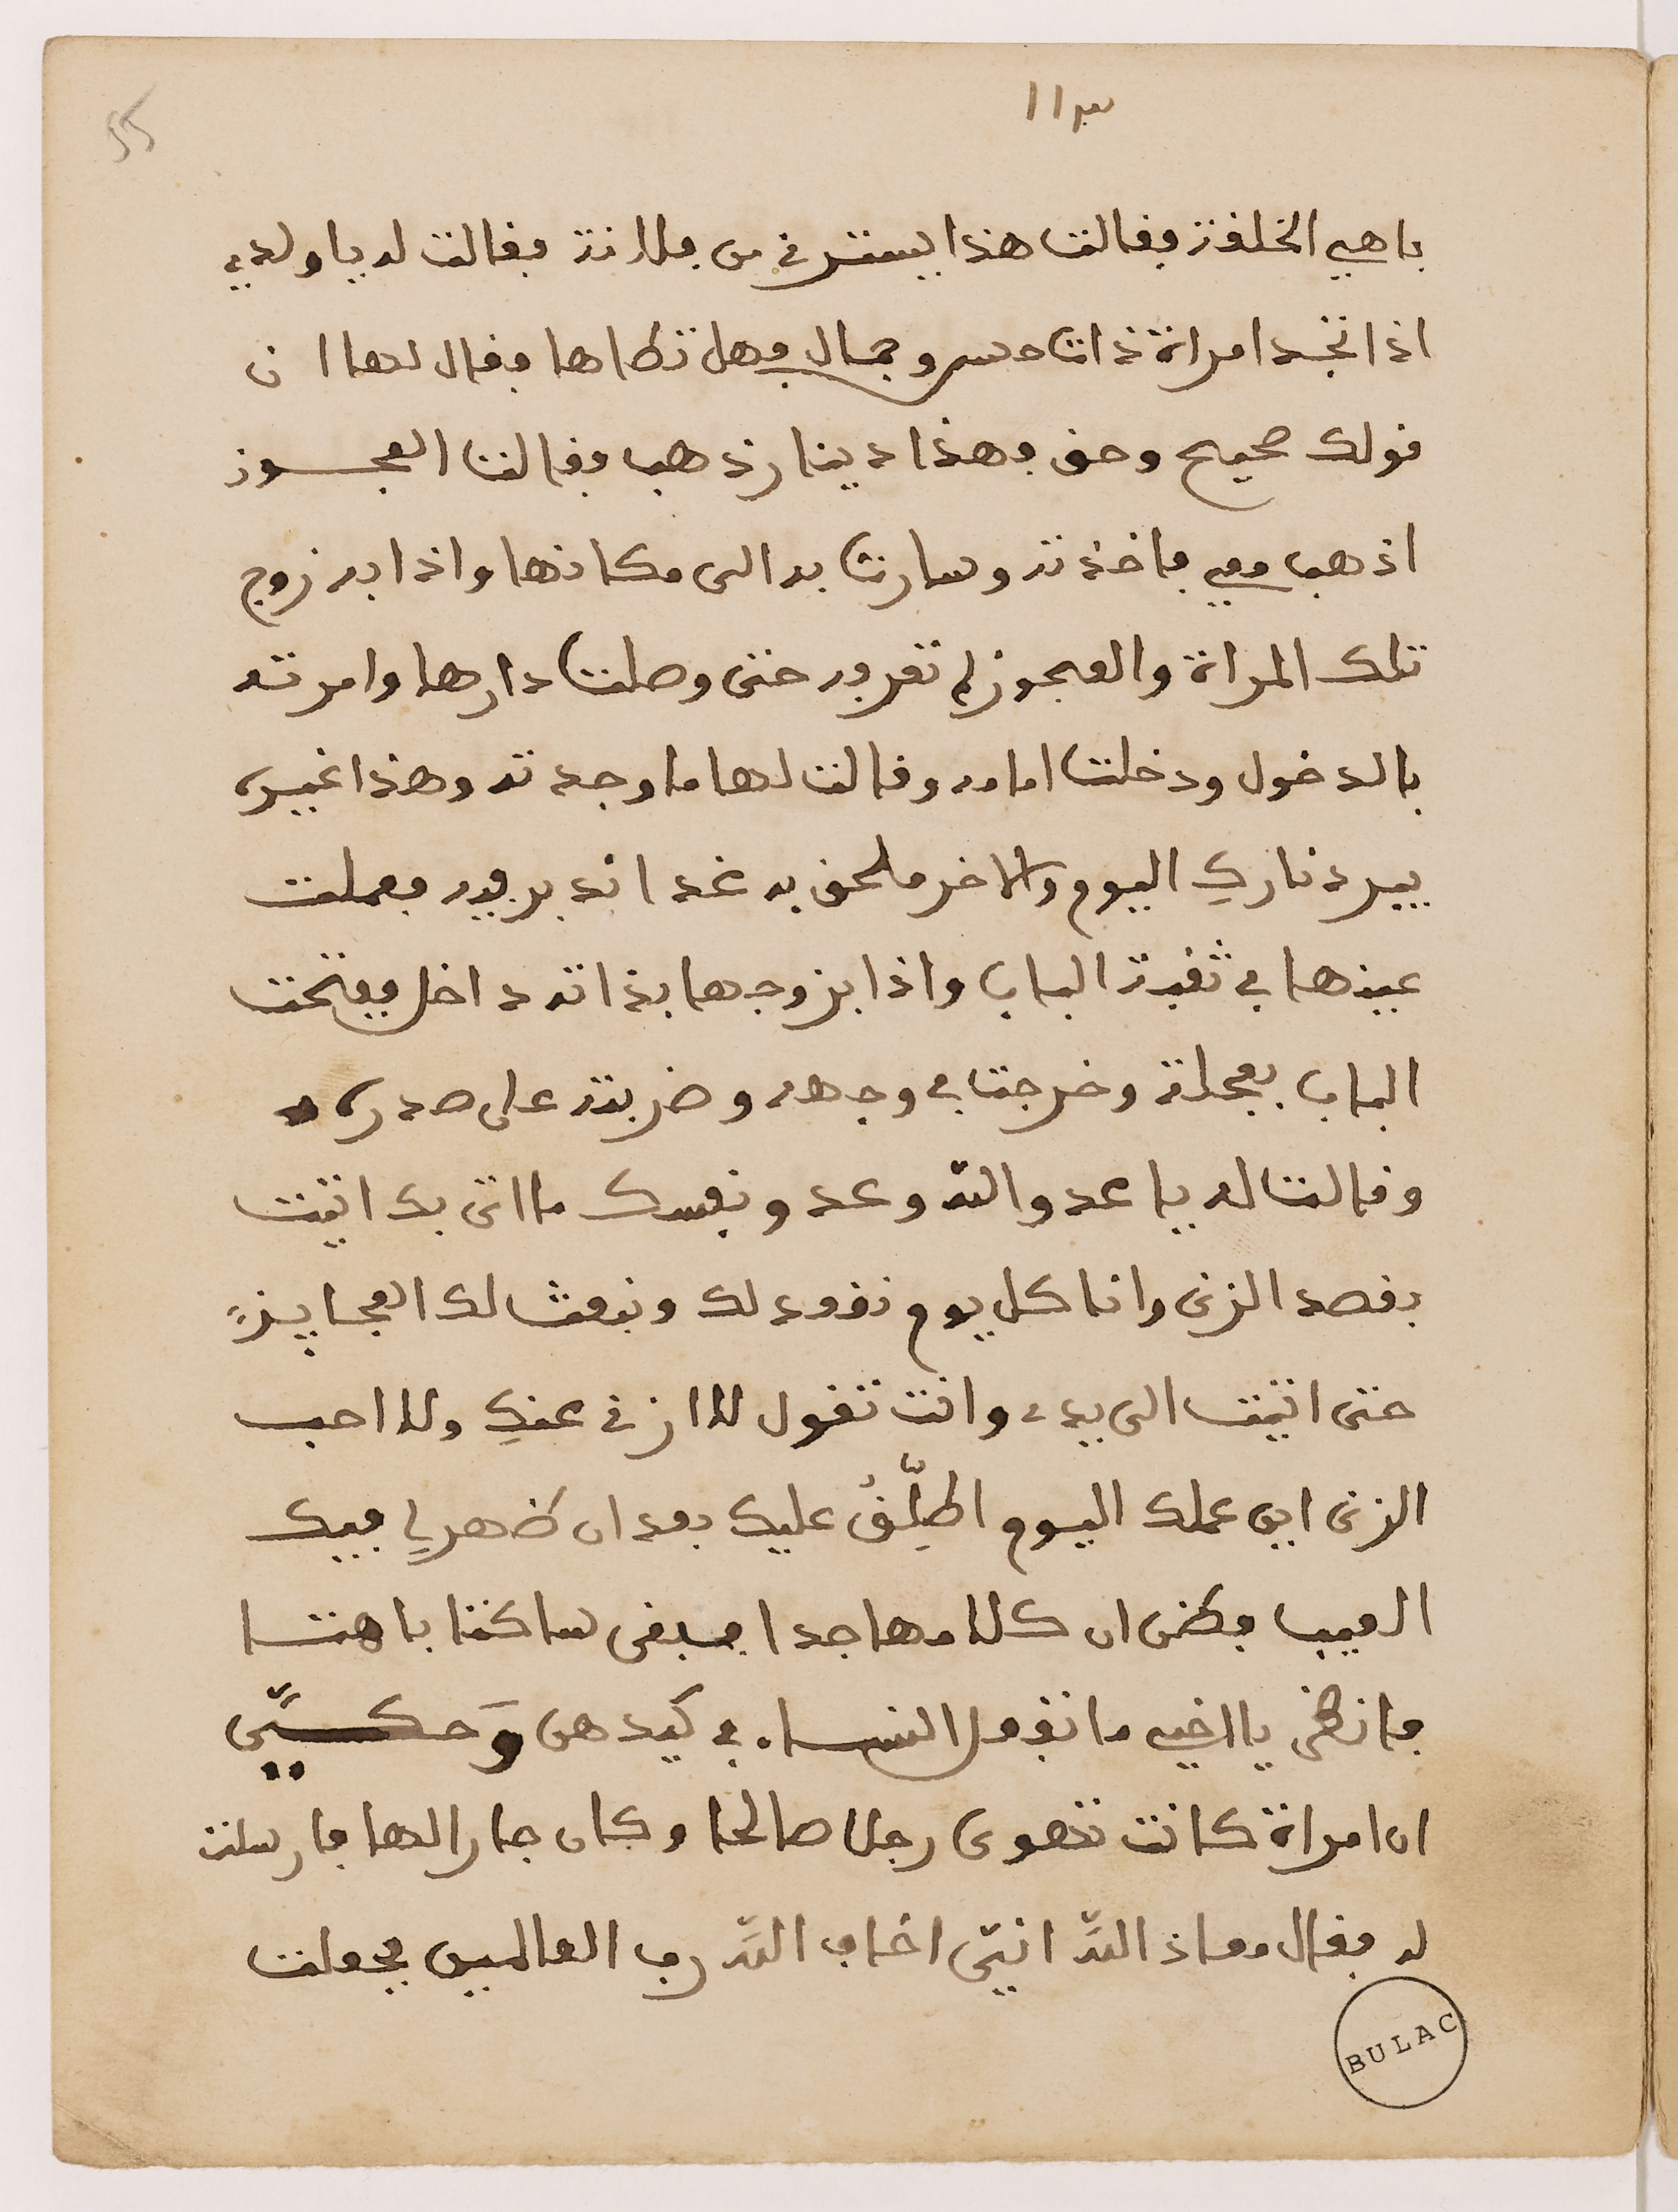 ١١٣
55
باهي الخلقة فقالت هذا يستر في من فلانة فقالت له يا ولدي
اذا تجد امراة ذات حسن وجمال فهل تطاها فقال لها ان
قولك صحيح وحق وهذا دينار ذهب فقالت العجوز
اذهب معي فاخذته وسارت به الى مكانها واذا به زوج
تلك المراة والعجوز لم تعرفه حتى وصلت دارها وامرته
بالدخول ودخلت امامه وقالت لها ما وجدته وهذا غيره
يبرد نارك اليوم والاخر ملحق به غدا ندبر فيه فعملت
عينها في ثقبة الباب واذا بزوجها بذاته داخل ففتحت
الباب بعجلة وخرجت في وجهه وضربته على صدره
وقالت له يا عدو الله وعدو نفسك ما اتى بك اتيت
بقصد الزنى وانا كل يوم نقود لك ونبعث لك العجايز
حتى اتيت الى يدي وانت تقول لا ازني عنكِ ولا احب
الزنى اين عملك اليوم اطلّق عليك بعد ان ظهر لي فيك
العيب فظن ان كلامها جدا فبقى ساكتا باهتا
فانظر يا اخي ما تفعل النساء في كيدهن وَحكيّ
ان امراة كانت تهوى رجلا صالحا وكان جارا لها فارسلت
له فقال معاذ الله انّي اخاف الله رب العالمين فجعلت
BULAC